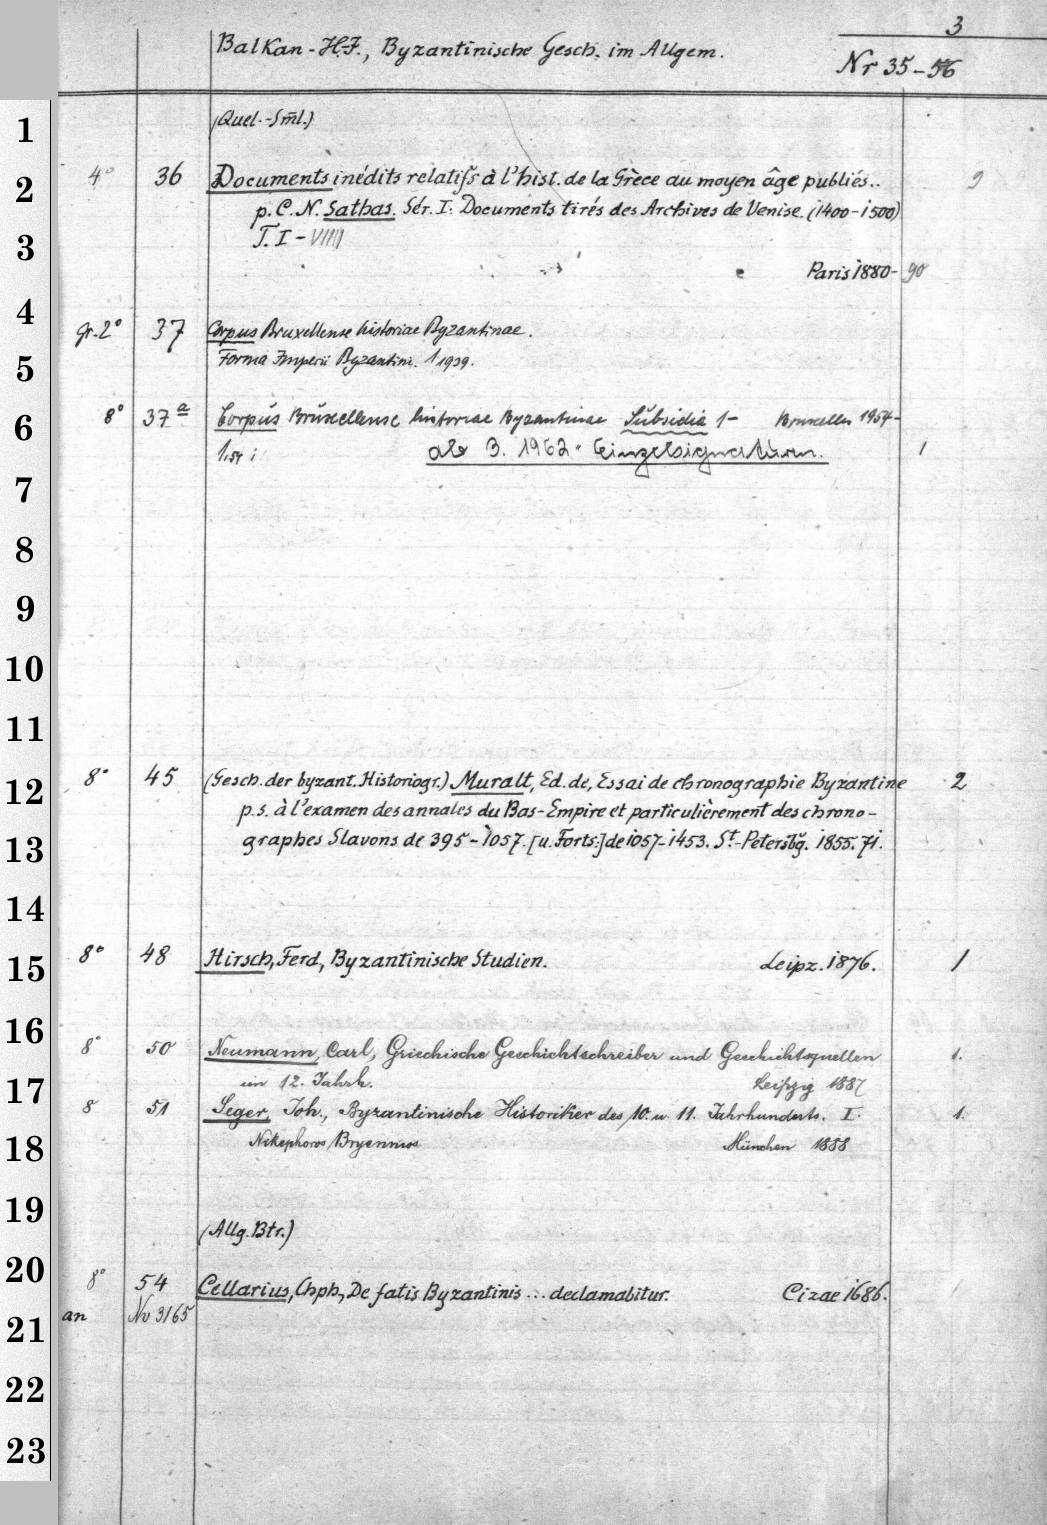 3
Balkan-H.F., Byzantinische Gesch. im Allgem. Nr 35-56
1
(Quel.-Sml.)
2 4° 36 Documents inédits relatifs à l'hist. de la Grèce au moyen âge publiés.. 9
p. C. N. Sathas. Sér. I: Documents tirés des Archives de Venise. (1400-1500)
3 T. I-VIIII
Paris 1880-90
4 gr. 2° 37 Corpus Bruxellense historiae Byzantinae.
5 Forma Imperii Byzantini. 1 1939.
6 8° 37a Corpus Bruxellense historiae Byzantinae Subsidia 1- Bruxelles 1954-
1.54; ab 3. 1962: Einzelsignaturen. 1
7
8
9
10
11
12 8° 45 (Gesch. der byzant. Historiogr.) Muralt, Ed. de, Essai de chronographie Byzantine 2
p. s. à l'examen des annales du Bas-Empire et particulièrement des chrono-
13 graphes Slavons de 395-1057. [u. Forts:] de 1057-1453. St.-Petersbg. 1855. 71.
14
15 8° 48 Hirsch, Ferd., Byzantinische Studien. Leipz. 1876. 1
16 8° 50 Neumann, Carl, Griechische Geschichtschreiber und Geschichtsquellen 1.
17 im 12. Jahrh. Leipzig 1887
8 51 Seger, Joh., Byzantinische Historiker des 10. u. 11. Jahrhunderts. I. 1.
18 Nikephoros Bryennios München 1888
19 (Allg. Btr.)
20 8° 54 Cellarius, Chph., De fatis Byzantinis ... declamabitur. Cizae 1686.
21 an Nv 3165
22
23